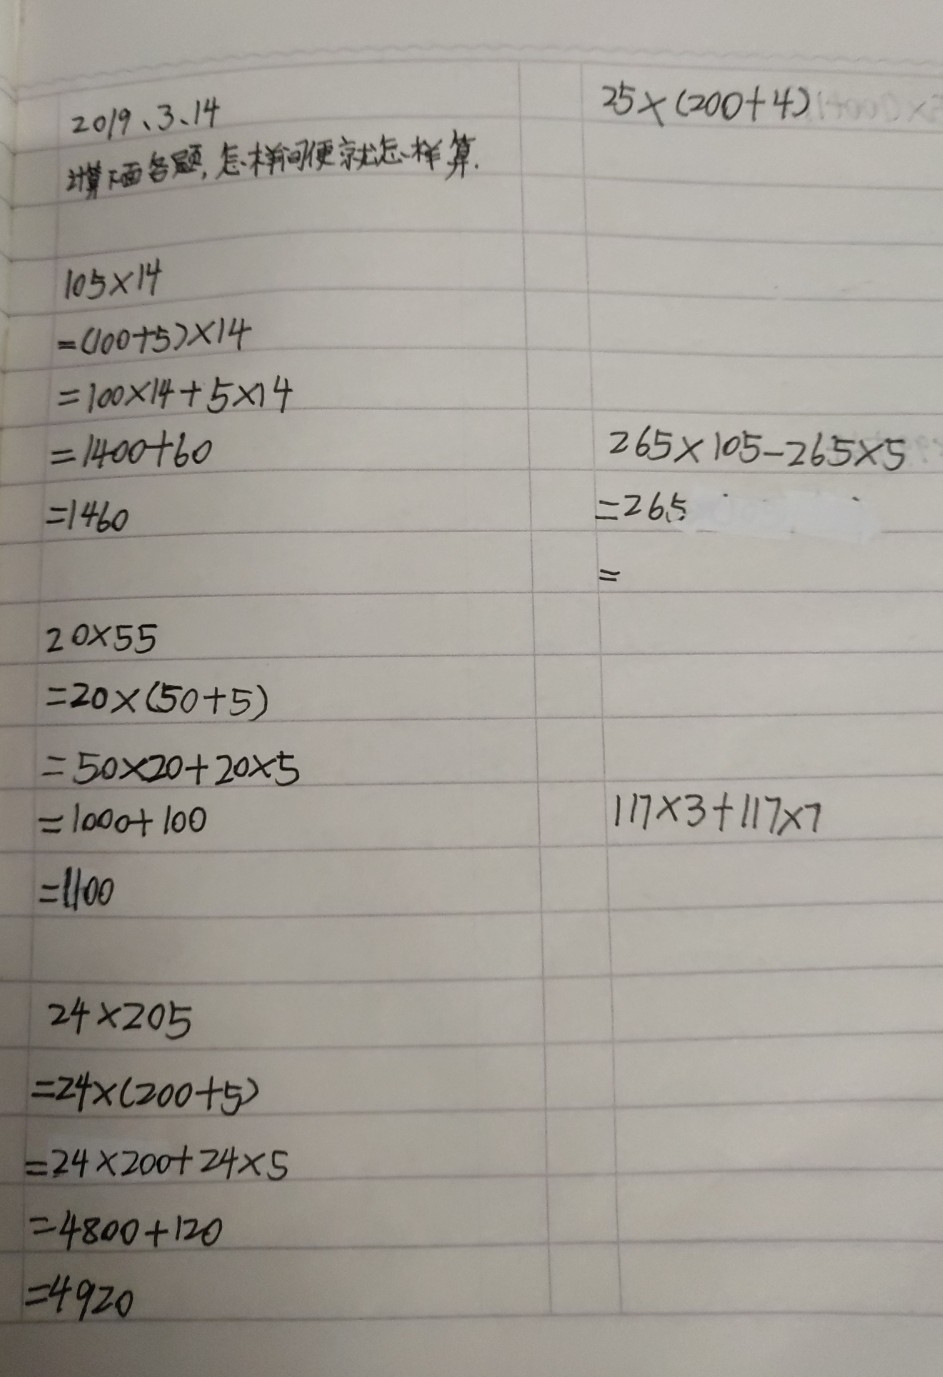 2019、3、14
计算下面各题,怎样简便就怎样算.
105×14
=(100+5)×14
=100×14+5×14
=1400+60
=1460
20×55
=20×(50+5)
=50×20+20×5
=1000+100
=1100
24×205
=24×(200+5)
=24×200+24×5
=4800+120
=4920
25×(200+4)
265×105-265×5
=265
=
117×3+117×7